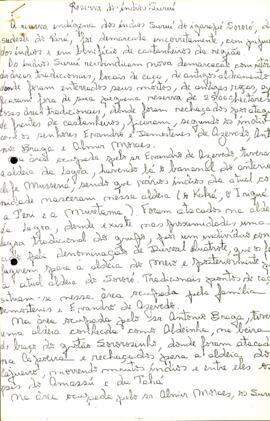 Reserva dos Índios Suruí
A reserva indígena dos índios Suruí do igarapé Sororó, ao
sudeste do Pará, foi demarcada incorretamente, com prejuízo
dos índios e em benefício de castanheiros da região
Os índios Suruí reivindicam nova demarcação com
áreas tradicionais, locais de caça, de antigos aldeamentos
onde foram enterrados seus mortos, de antigas roças, que
ficaram fora de sua pequena reserva de 25000 hectares.
Essas áreas tradicionais, donde foram rechaçados por ataques
de frentes de castanheiros, ficaram, segundo os índios
com os senhores Evandro e Demostenes de Azevedo, Antonio
Braga e Almir Moraes.
Na área ocupada pelo sr Evandro de Azevedo, tiveram
a aldeia da Lagoa, havendo lá o bananal do antigo
chefe Mussené, sendo que vários índios da atual co
munidade nasceram nessa aldeia
Foram atacados na aldeia
da Lagoa, donde existe nas proximidades uma
roça tradicional do grupo, por um indivíduo com
pela denominação de
fugirem para a aldeia do Meio e posteriormente para
a atual aldeia do Sororó. Tradicionais pontos de caça
nessa área ocupada pela família
Demostenes e Evandro de Azevedo.
Na área ocupada pelo sr Antonio Braga, tiveram
uma aldeia conhecida como Aldeinha, na beira
do braço do grotão Sororozinho, donde foram atacados
na Capoeira e rechaçados para a aldeia do
Cajueiro, morrendo muitos índios e entre eles os
pais do Amassú e de
Na área ocupada pelo sr Almir Moraes, os Suruí